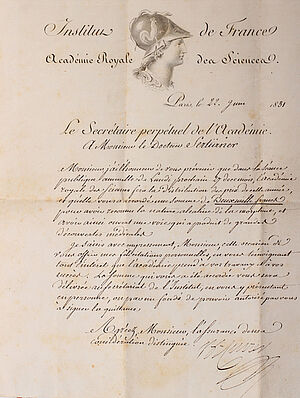 Institut de France
Académie Royale des Sciences.
Paris, le 22 Juin 1831
Le Secrétaire perpétuel de l'Académie
A Monsieur le Docteur Sertürner
Monsieur j'ai l'honneur de vous prévenir que dans la séance
publique annuelle de Lundi prochain 27 du mois, l'académie
royale des sciences fera la distribution des prix de cette année,
et qu'elle vous a accordé une somme de Deux mille francs
pour avoir reconnu la nature alcaline de la morphine, et
avoir ainsi ouvert une voie qui a produit de grandes
découvertes médicales.
Je saisis avec empressement, Monsieur, cette occasion de
vous offrir mes félicitations personnelles, en vous témoignant
tout l'intérêt que l'académie prend à vos travaux
La somme qui vous a été accordée vous sera
délivrée au secrétariat de l'Institut, en vous y présentant
en personne, ou par un fondé de pouvoir autorisé par vous
à signer la quittance.
Agréez, Monsieur, l'assurance de ma
considération distinguée.